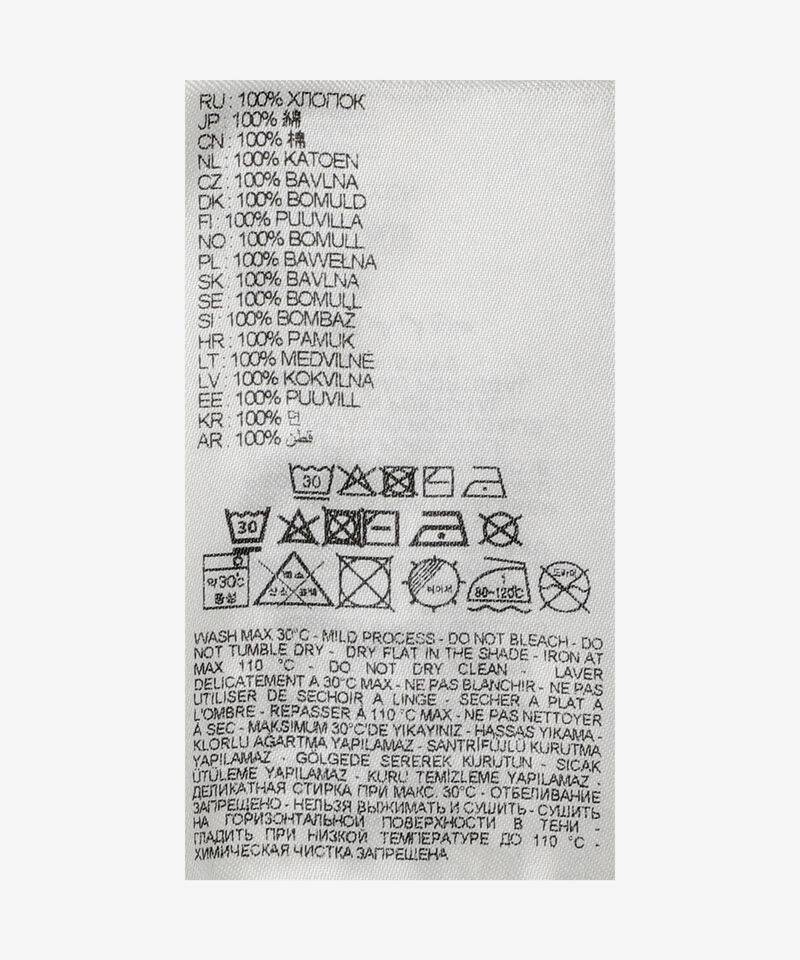 RU : 100% ХЛОПОК
JP : 100% 綿
CN : 100% 棉
NL : 100% KATOEN
CZ : 100% BAVLNA
DK : 100% BOMULD
FI : 100% PUUVILLA
NO : 100% BOMULL
PL : 100% BAWEŁNA
SK : 100% BAVLNA
SE : 100% BOMULL
SI : 100% BOMBAŽ
HR : 100% PAMUK
LT : 100% MEDVILNĖ
LV : 100% KOKVILNA
EE : 100% PUUVILL
KR : 100% 면
AR : 100% قطن
30
30
약30℃ 염소 산소 표백 뉘어서 80~120℃ 드라이
중성
WASH MAX 30°C - MILD PROCESS - DO NOT BLEACH - DO
NOT TUMBLE DRY - DRY FLAT IN THE SHADE - IRON AT
MAX 110 °C - DO NOT DRY CLEAN - LAVER
DELICATEMENT A 30°C MAX - NE PAS BLANCHIR - NE PAS
UTILISER DE SECHOIR A LINGE - SECHER A PLAT A
L'OMBRE - REPASSER À 110 °C MAX - NE PAS NETTOYER
À SEC - MAKSIMUM 30°C'DE YIKAYINIZ - HASSAS YIKAMA -
KLORLU AĞARTMA YAPILAMAZ - SANTRİFÜJLÜ KURUTMA
YAPILAMAZ - GÖLGEDE SEREREK KURUTUN - SICAK
ÜTÜLEME YAPILAMAZ - KURU TEMİZLEME YAPILAMAZ -
ДЕЛИКАТНАЯ СТИРКА ПРИ МАКС. 30°C - ОТБЕЛИВАНИЕ
ЗАПРЕЩЕНО - НЕЛЬЗЯ ВЫЖИМАТЬ И СУШИТЬ - СУШИТЬ
НА ГОРИЗОНТАЛЬНОЙ ПОВЕРХНОСТИ В ТЕНИ -
ГЛАДИТЬ ПРИ НИЗКОЙ ТЕМПЕРАТУРЕ ДО 110 °C -
ХИМИЧЕСКАЯ ЧИСТКА ЗАПРЕЩЕНА